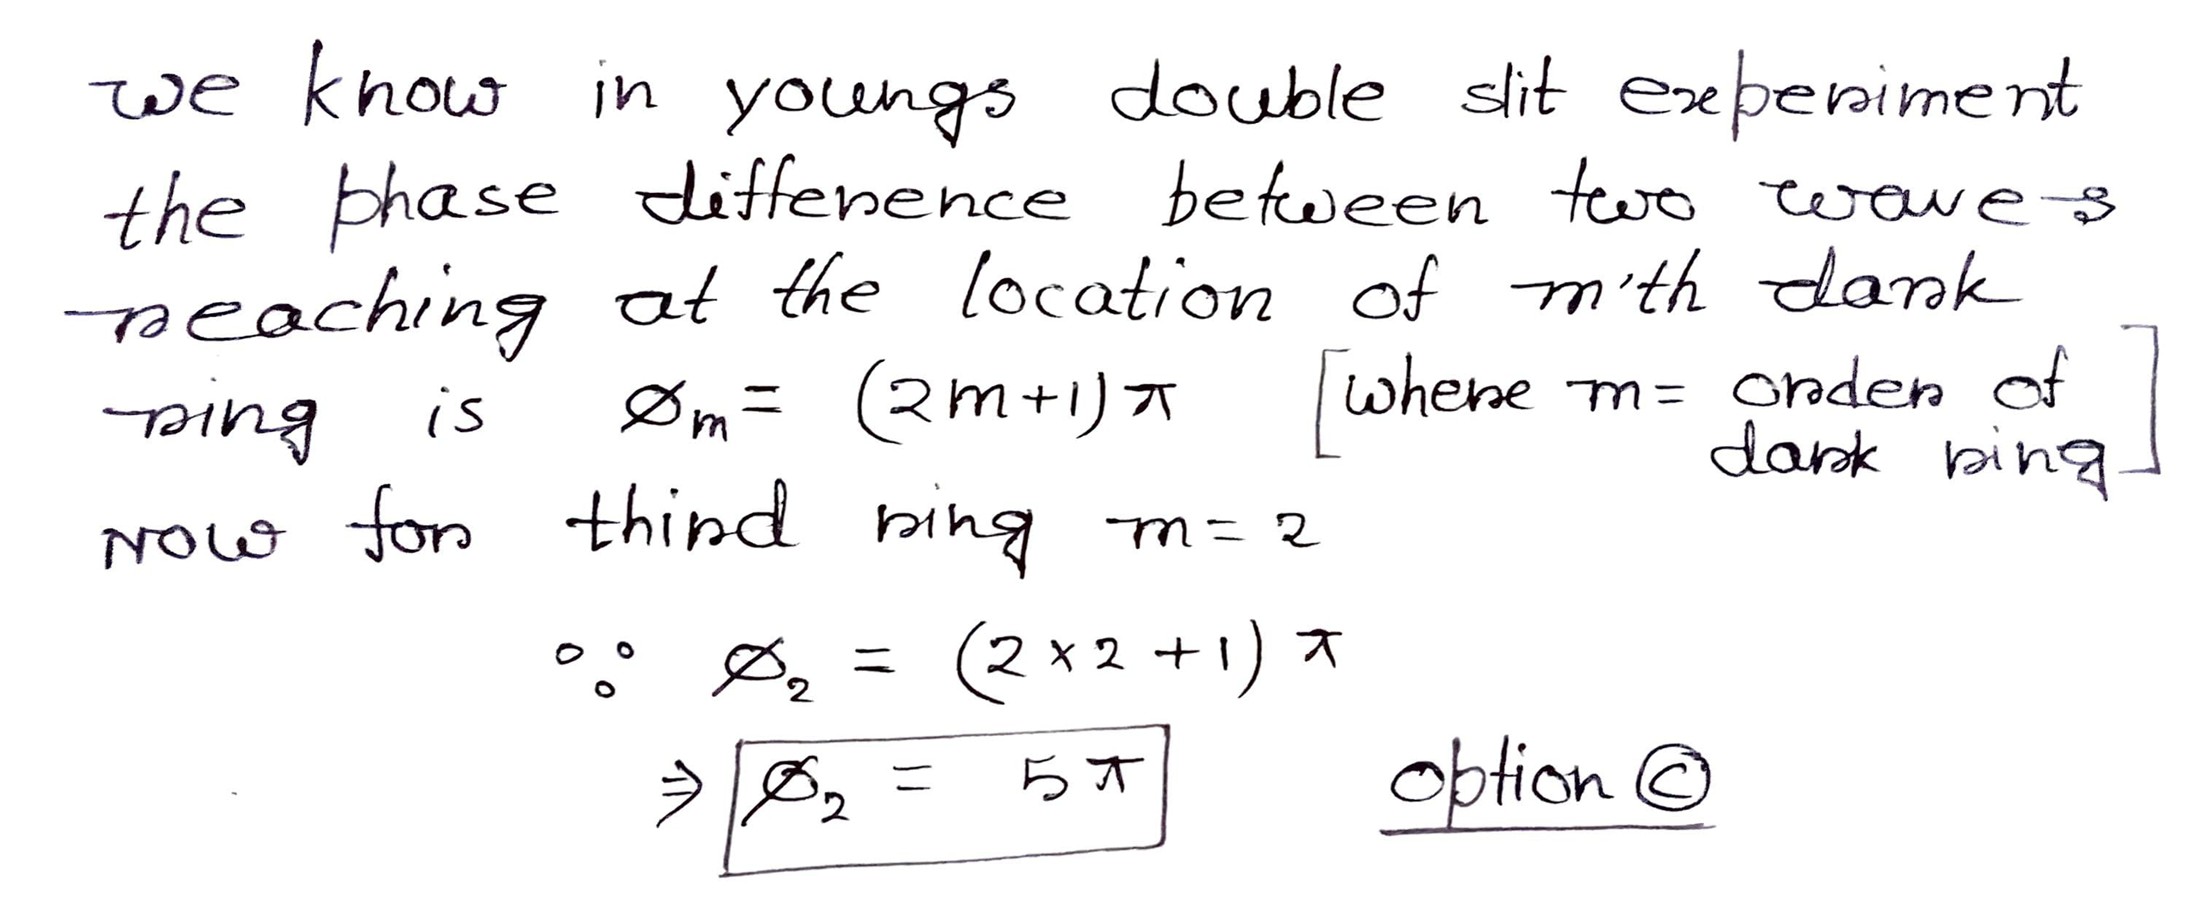 we know in youngs double slit experiment
the phase difference between two waves
reaching at the location of m'th dark
ring is Øm = (2m+1)π [where m = order of
dark ring]
Now for third ring m = 2
∵ Ø2 = (2×2+1) π
⇒ Ø2 = 5π option ©